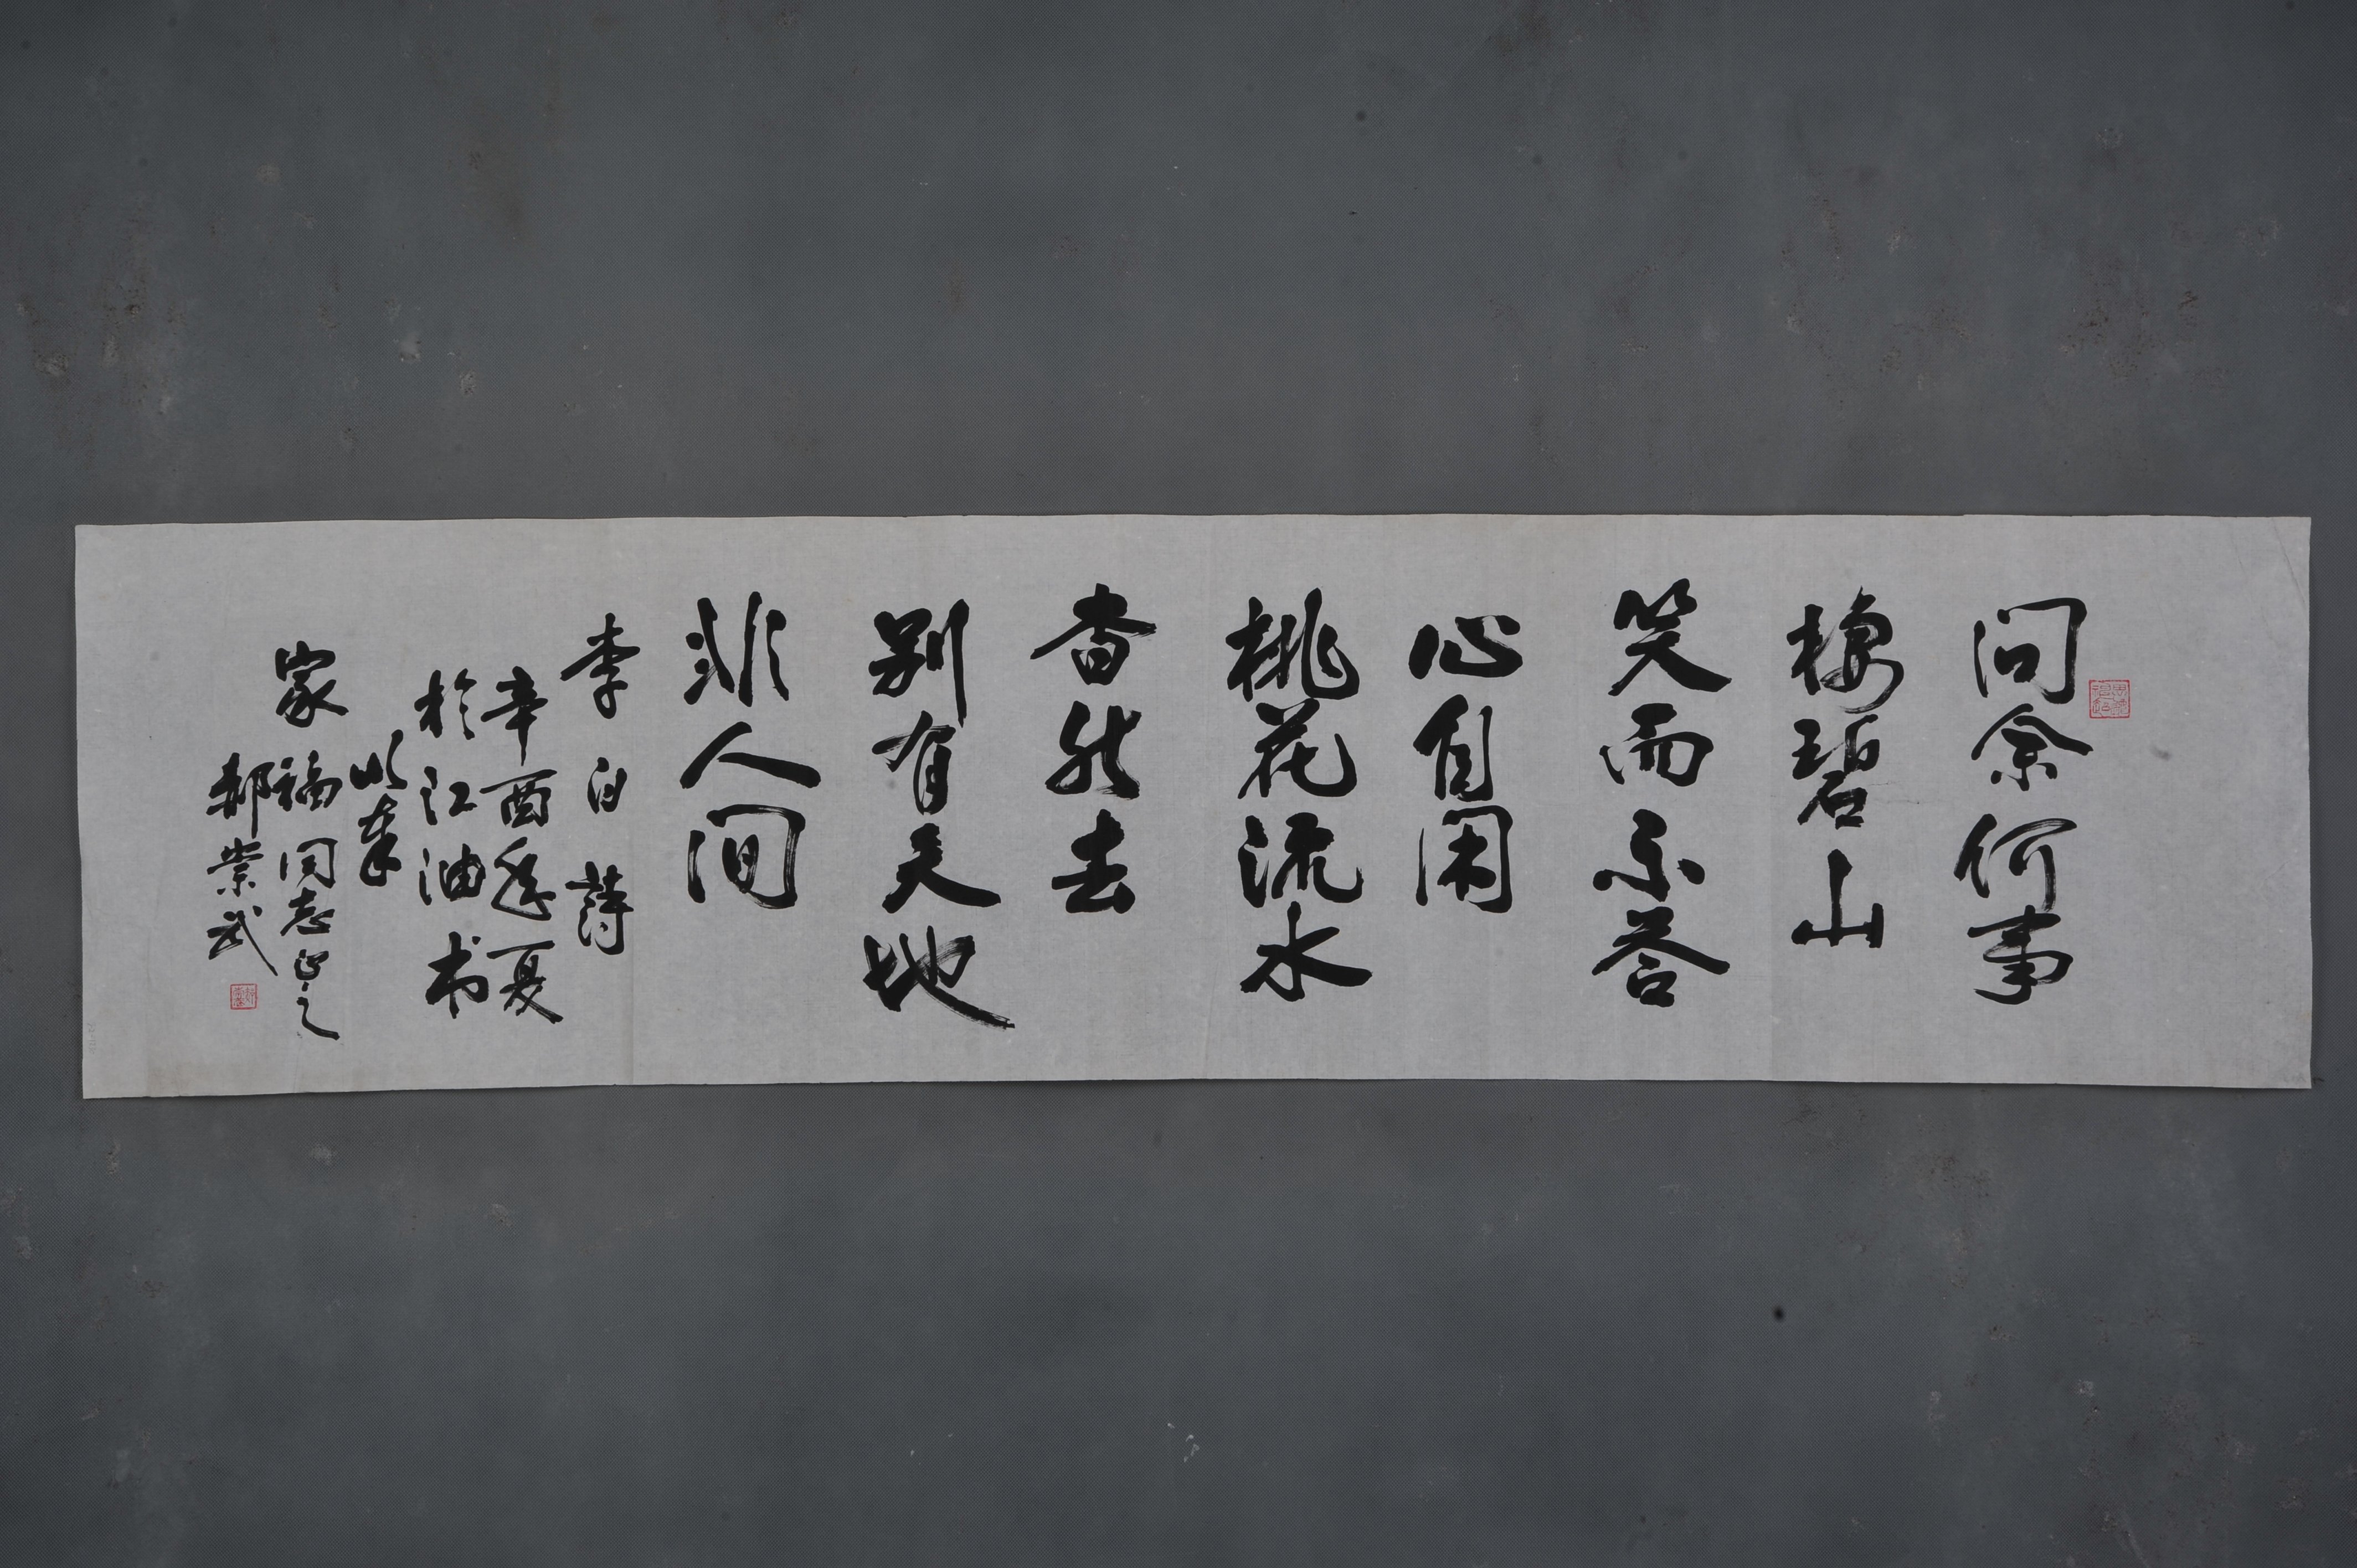 问余何事
棲碧山
笑而不答
心自闲
桃花流水
杳然去
别有天地
非人间
李白詩
辛酉年夏
於江油书
以奉
家福同志正之
郝崇武